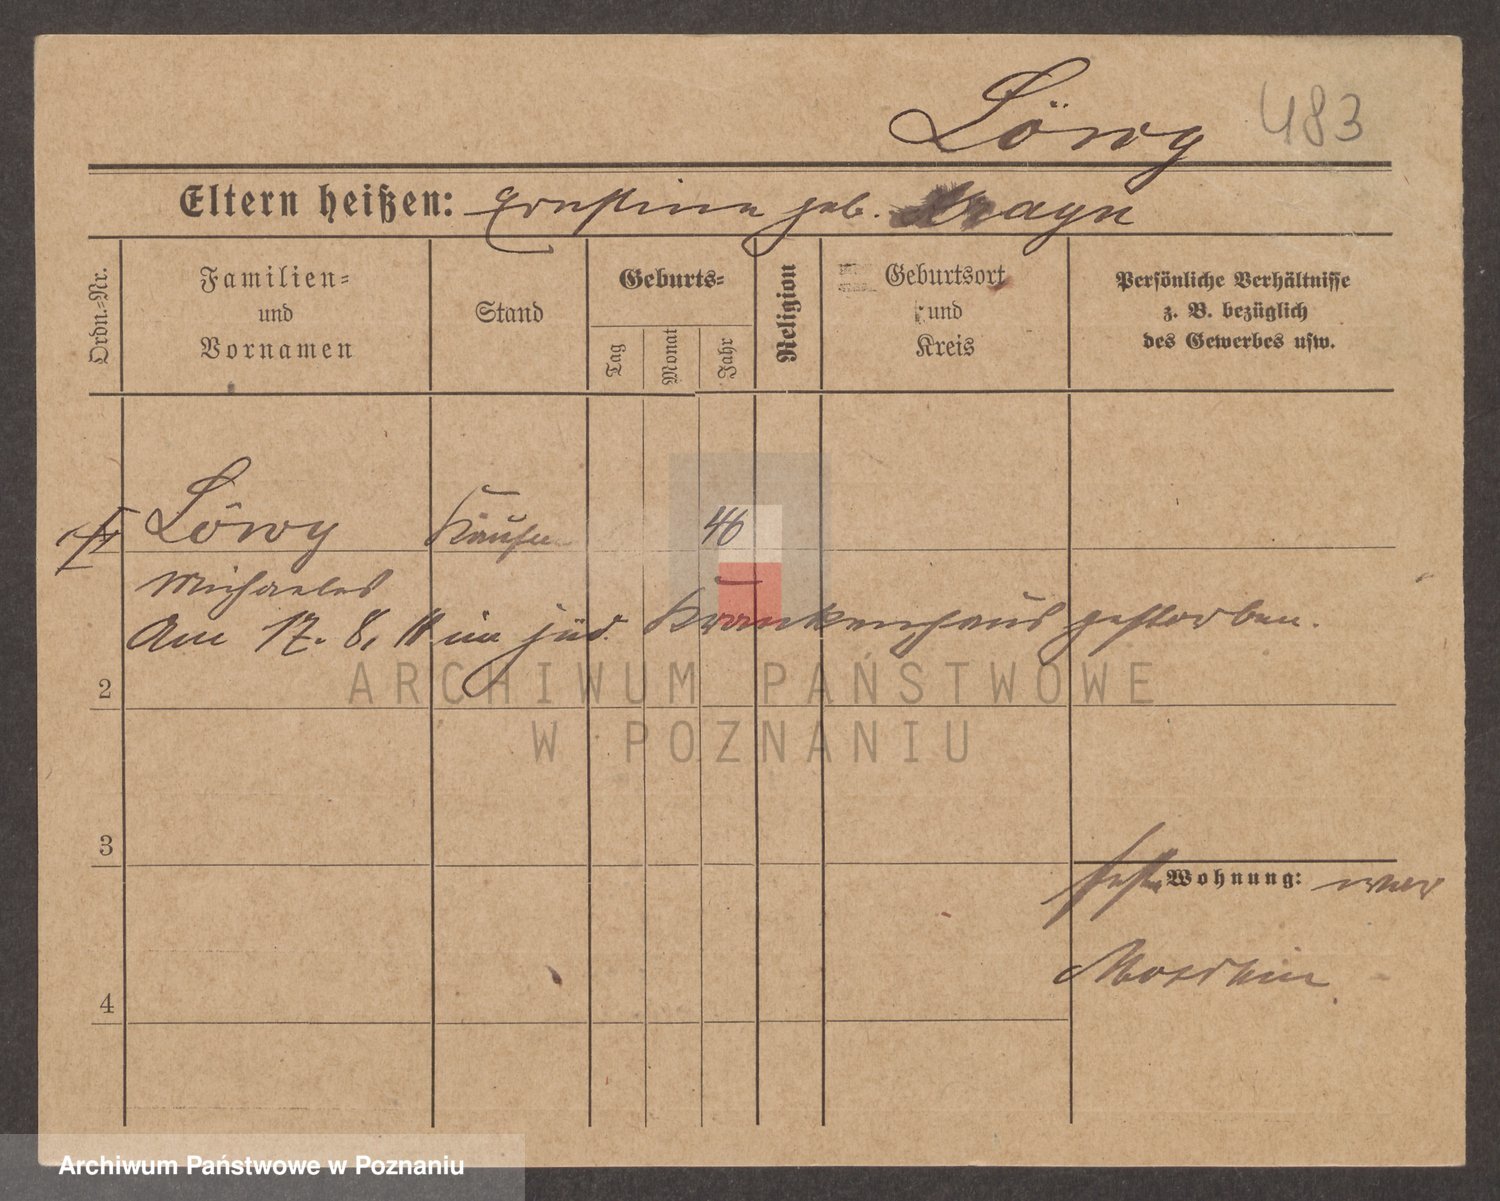 Löwy 483
Eltern heißen: Ernstine geb. Krayn
Ordn.-Nr.
Familien- und Vornamen
Stand
Geburts-
Tag
Monat
Jahr
Religion
Geburtsort und Kreis
Persönliche Verhältnisse
z. B. bezüglich
des Gewerbes usw.
Löwy Kaufm 46
Michaelis
Am 17. 8. 11 im jüd. Krankenhaus gestorben.
ARCHIWUM PAŃSTWOWE
W POZNANIU
2
3
Wohnung:
4
Archiwum Państwowe w Poznaniu